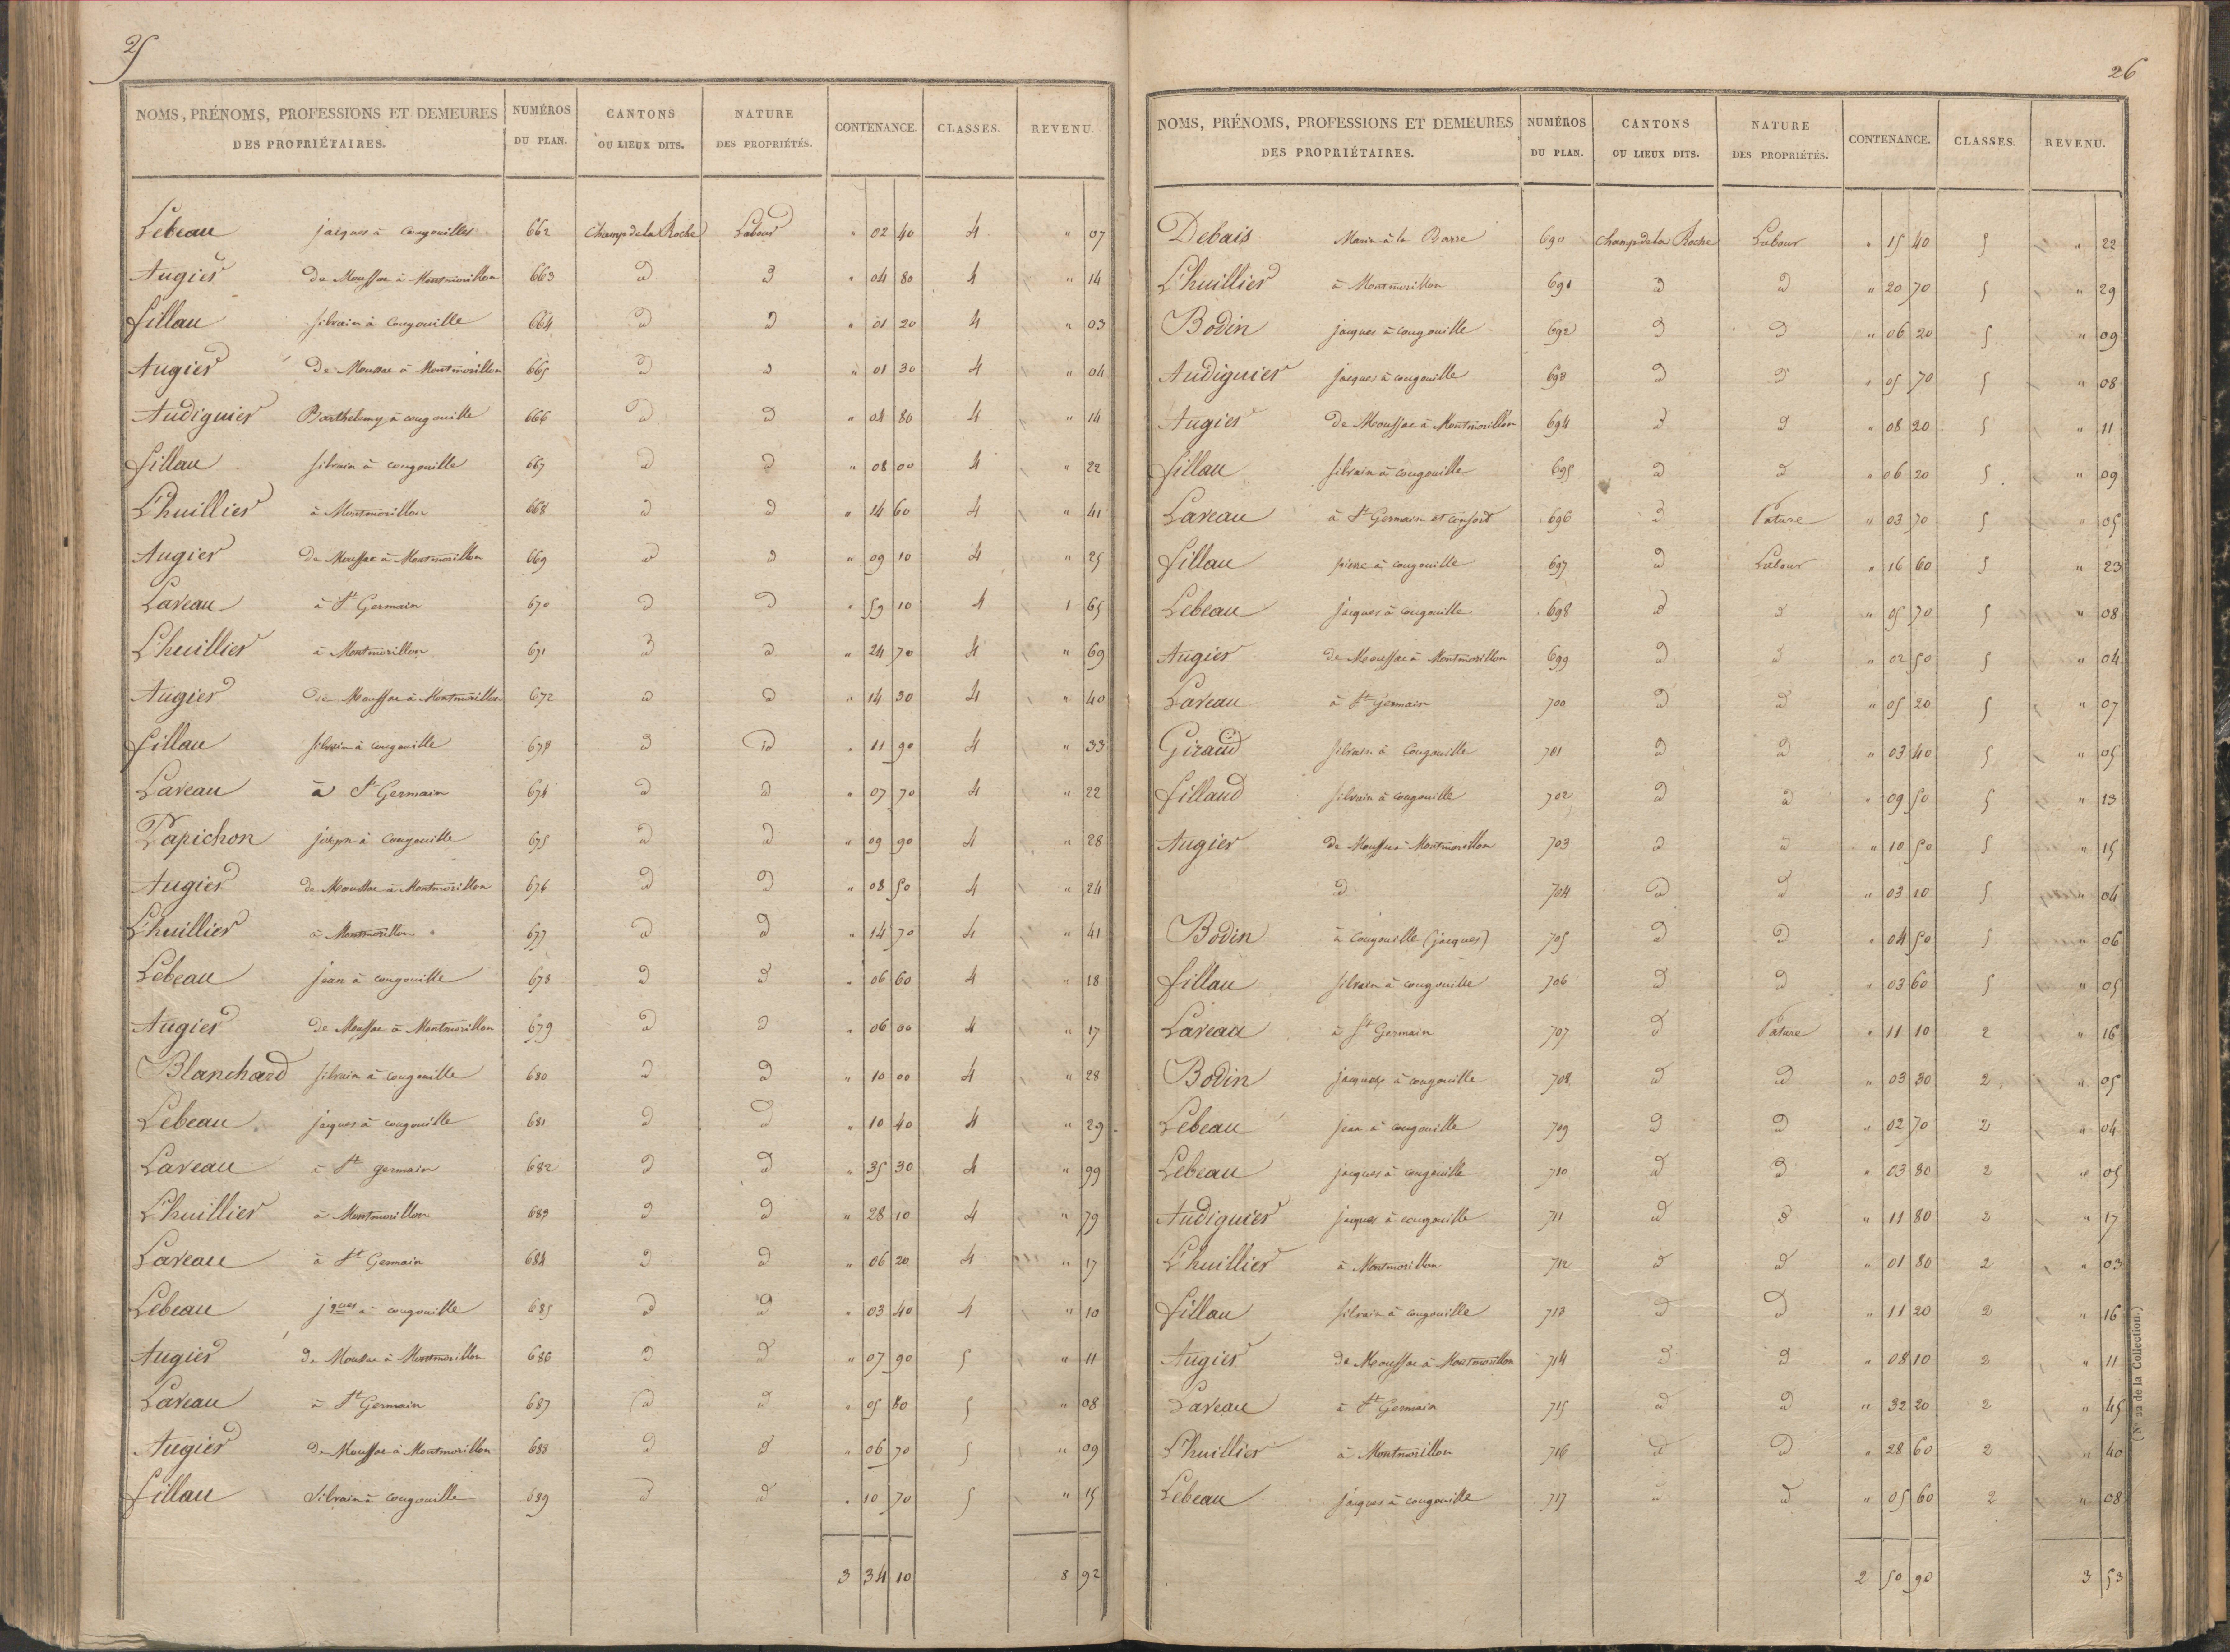 25
NOMS, PRÉNOMS, PROFESSIONS ET DEMEURES DES PROPRIÉTAIRES. NUMÉROS DU PLAN. CANTONS OU LIEUX DITS. NATURE DES PROPRIÉTÉS. CONTENANCE. CLASSES. REVENU.
Lebeau jacques à cougouilles 662 Champ de la Roche Labour " 02 40 4 " 07
Augier de Moussac à Montmorillon 663 d d " 04 80 4 " 14
fillau silvain à cougouille 664 d d " 01 20 4 " 03
Augier de Moussac à Montmorillon 665 d d " 01 30 4 " 04
Audiguier Barthelemy à cougouille 666 d d " 04 80 4 " 14
fillau silvain à cougouille 667 d d " 08 00 4 " 22
L'huillier à Montmorillon 668 d d " 14 60 4 " 41
Augier de Moussac à Montmorillon 669 d d " 09 10 4 " 25
Laveau à St Germain 670 d d " 59 10 4 1 65
L'huillier à Montmorillon 671 d d " 24 70 4 " 69
Augier de Moussac à Montmorillon 672 d d " 14 30 4 " 40
fillau silvain à cougouille 673 d d " 11 90 4 " 33
Laveau à St Germain 674 d d " 07 70 4 " 22
Papichon joseph à cougouille 675 d d " 09 90 4 " 28
Augier de Moussac à Montmorillon 676 d d " 08 50 4 " 24
L'huillier à Montmorillon 677 d d " 14 70 4 " 41
Lebeau jean à cougouille 678 d d " 06 60 4 " 18
Augier de Moussac à Montmorillon 679 d d " 06 00 4 " 17
Blanchard silvain à cougouille 680 d d " 10 00 4 " 28
Lebeau jacques à cougouille 681 d d " 10 40 4 " 29
Laveau à St germain 682 d d " 35 30 4 " 99
L'huillier à Montmorillon 683 d d " 28 10 4 " 79
Laveau à St Germain 684 d d " 06 20 4 " 17
Lebeau jques à cougouille 685 d d " 03 40 4 " 10
Augier de Moussac à Montmorillon 686 d d " 07 90 5 " 11
Laveau à St Germain 687 d d " 05 80 5 " 08
Augier de Moussac à Montmorillon 688 d d " 06 70 5 " 09
fillau Silvain à cougouille 689 d d " 10 70 5 " 15
3 34 10 8 92
26
NOMS, PRÉNOMS, PROFESSIONS ET DEMEURES DES PROPRIÉTAIRES. NUMÉROS DU PLAN. CANTONS OU LIEUX DITS. NATURE DES PROPRIÉTÉS. CONTENANCE. CLASSES. REVENU.
Debais Marie à la Barre 690 Champ de la Roche Labour " 15 40 5 " 22
L'huillier à Montmorillon 691 d d " 20 70 5 " 29
Bodin jacques à cougouille 692 d d " 06 20 5 " 09
Audiguier jacques à cougouille 693 d d " 05 70 5 " 08
Augier de Moussac à Montmorillon 694 d d " 08 20 5 " 11
fillau silvain à cougouille 695 d d " 06 20 5 " 09
Laveau à St Germain et consort 696 d Pature " 03 70 5 " 05
fillau pierre à cougouille 697 d Labour " 16 60 5 " 23
Lebeau jacques à cougouille 698 d d " 05 70 5 " 08
Augier de Moussac à Montmorillon 699 d d " 02 50 5 " 04
Laveau à St Germain 700 d d " 05 20 5 " 07
Giraud silvain à Cougouille 701 d d " 03 40 5 " 05
fillaud silvain à cougouille 702 d d " 09 50 5 " 13
Augier de Moussac à Montmorillon 703 d d " 10 50 5 " 15
d 704 d d " 03 10 5 " 04
Bodin à cougouille (jacques) 705 d d " 04 50 5 " 06
fillau silvain à cougouille 706 d d " 03 60 5 " 05
Laveau à St Germain 707 d Pature " 11 10 2 " 16
Bodin jacques à cougouille 708 d d " 03 30 2 " 05
Lebeau jean à cougouille 709 d d " 02 70 2 " 04
Lebeau jacques à cougouille 710 d d " 03 80 2 " 05
Audiguier jacques à cougouille 711 d d " 11 80 2 " 17
L'huillier à Montmorillon 712 d d " 01 80 2 " 03
fillau silvain à cougouille 713 d d " 11 20 2 " 16
Augier de Moussac à Montmorillon 714 d d " 08 10 2 " 11
Laveau à St Germain 715 d d " 32 20 2 " 45
L'huillier à Montmorillon 716 d d " 28 60 2 " 40
Lebeau jacques à cougouille 717 d d " 05 60 2 " 08
2 50 90 3 53
(N° 22 de la Collection)